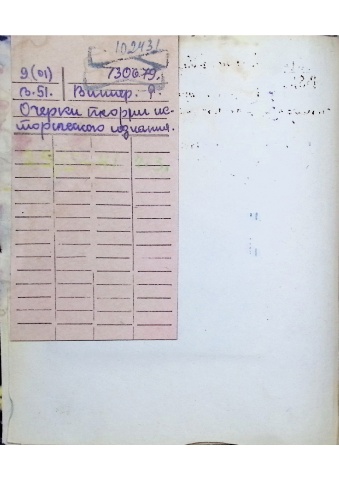 102431
9(01) 130679.
В.51. Виппер. Р.
Очерки теории ис-
торического познания.